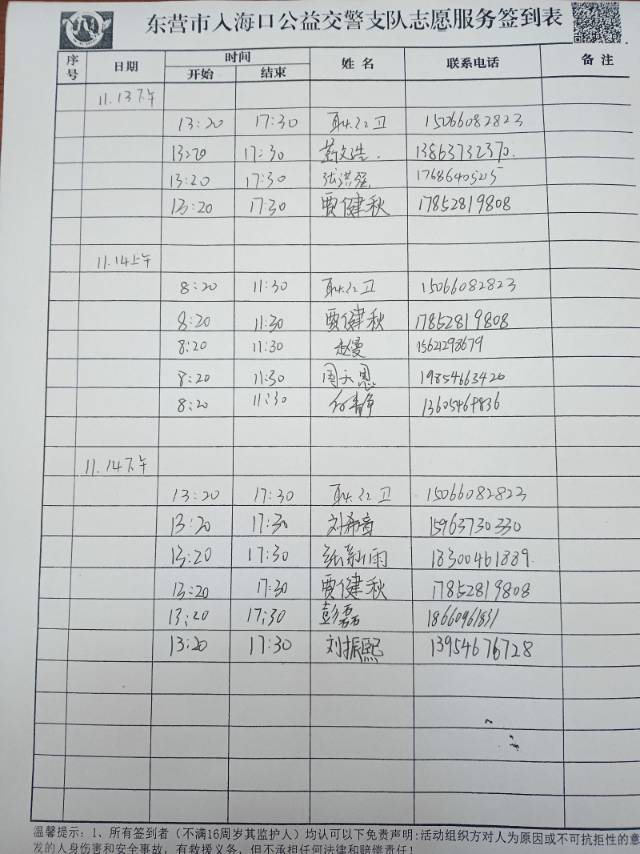 东营市入海口公益交警支队志愿服务签到表
序号 日期 时间 姓名 联系电话 备注
开始 结束
11.13下午
13:20 17:30 耿红卫 15066082823
13:20 17:30 13863732370.
13:20 17:30 张洪强 1768640525
13:20 17:30 贾健秋 17852819808
11.14上午
8:20 11:30 耿红卫 15066082823
8:20 11:30 贾健秋 17852819808
8:20 11:30 赵曼 15621298679
8:20 11:30 周天恩 19854663420
8:20 11:30 何静 13605464836
11.14下午
13:20 17:30 耿红卫 15066082823
13:20 17:30 刘希音 15963730330
13:20 17:30 张新雨 18300461889.
13:20 17:30 贾健秋 17852819808
13:20 17:30 彭磊 18660961831
13:20 17:30 刘振熙 13954676728
温馨提示：1、所有签到者（不满16周岁其监护人）均认可以下免责声明：活动组织方对人为原因或不可抗拒性的意
发的人身伤害和安全事故，有救援义务，但不承担任何法律和赔偿责任！